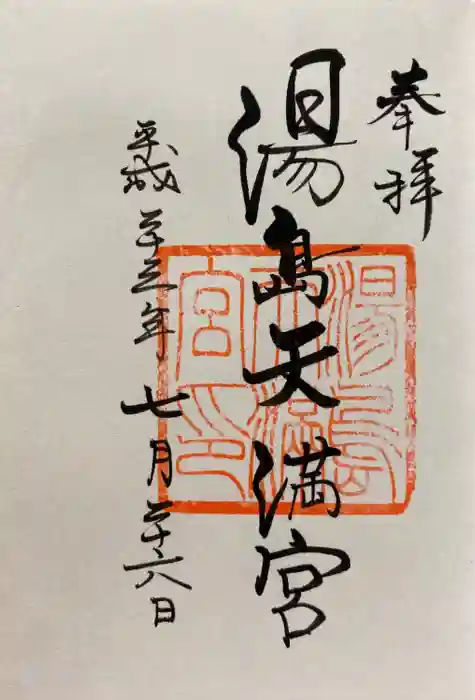 奉拝
湯島天満宮
平成二十五年七月二十六日
湯島
天満
宮印